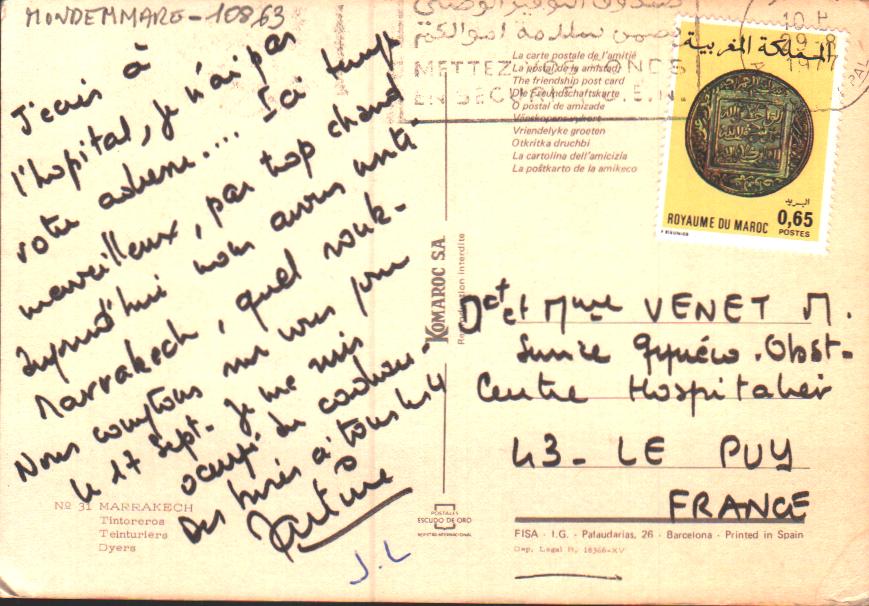 MONDEMMARE - 10863
J'ecris à
l'hopital, je n'ai pas
votre adresse.... Ici temps
merveilleux, pas trop chaud
Aujourd'hui nous avons visité
Marrakech, quel souk-
Nous comptons sur vous pour
le 17 Sept. Je me suis
occupé du cochon.
Des bises à tous les 4
Martine
J.L
Nº 31 MARRAKECH
Tintoreros
Teinturiers
Dyers
KOMAROC S.A.
Reproduction interdite
POSTALES
ESCUDO DE ORO
REGISTRO INTERNACIONAL
صندوق التوفير الوطني
يضمن سلامة اموالكم
METTEZ VOS FONDS
EN SECURITE C.E.N.
La carte postale de l'amitié
La postal de la amistad
The friendship post card
Die Freundschaftskarte
O postal de amizade
Vänskapens vykort
Vriendelyke groeten
Otkritka druchbi
La cartolina dell'amicizia
La poŝtkarto de la amikeco
10 H
29-8
1977
المملكة المغربية
البريد
ROYAUME DU MAROC
0,65
POSTES
Dct et Mme VENET M.
Service Gynéco. Obst-
Centre Hospitalier
43 - LE PUY
FRANCE
FISA - I.G. - Palaudarias, 26 - Barcelona - Printed in Spain
Dep. Legal B. 18366-XV